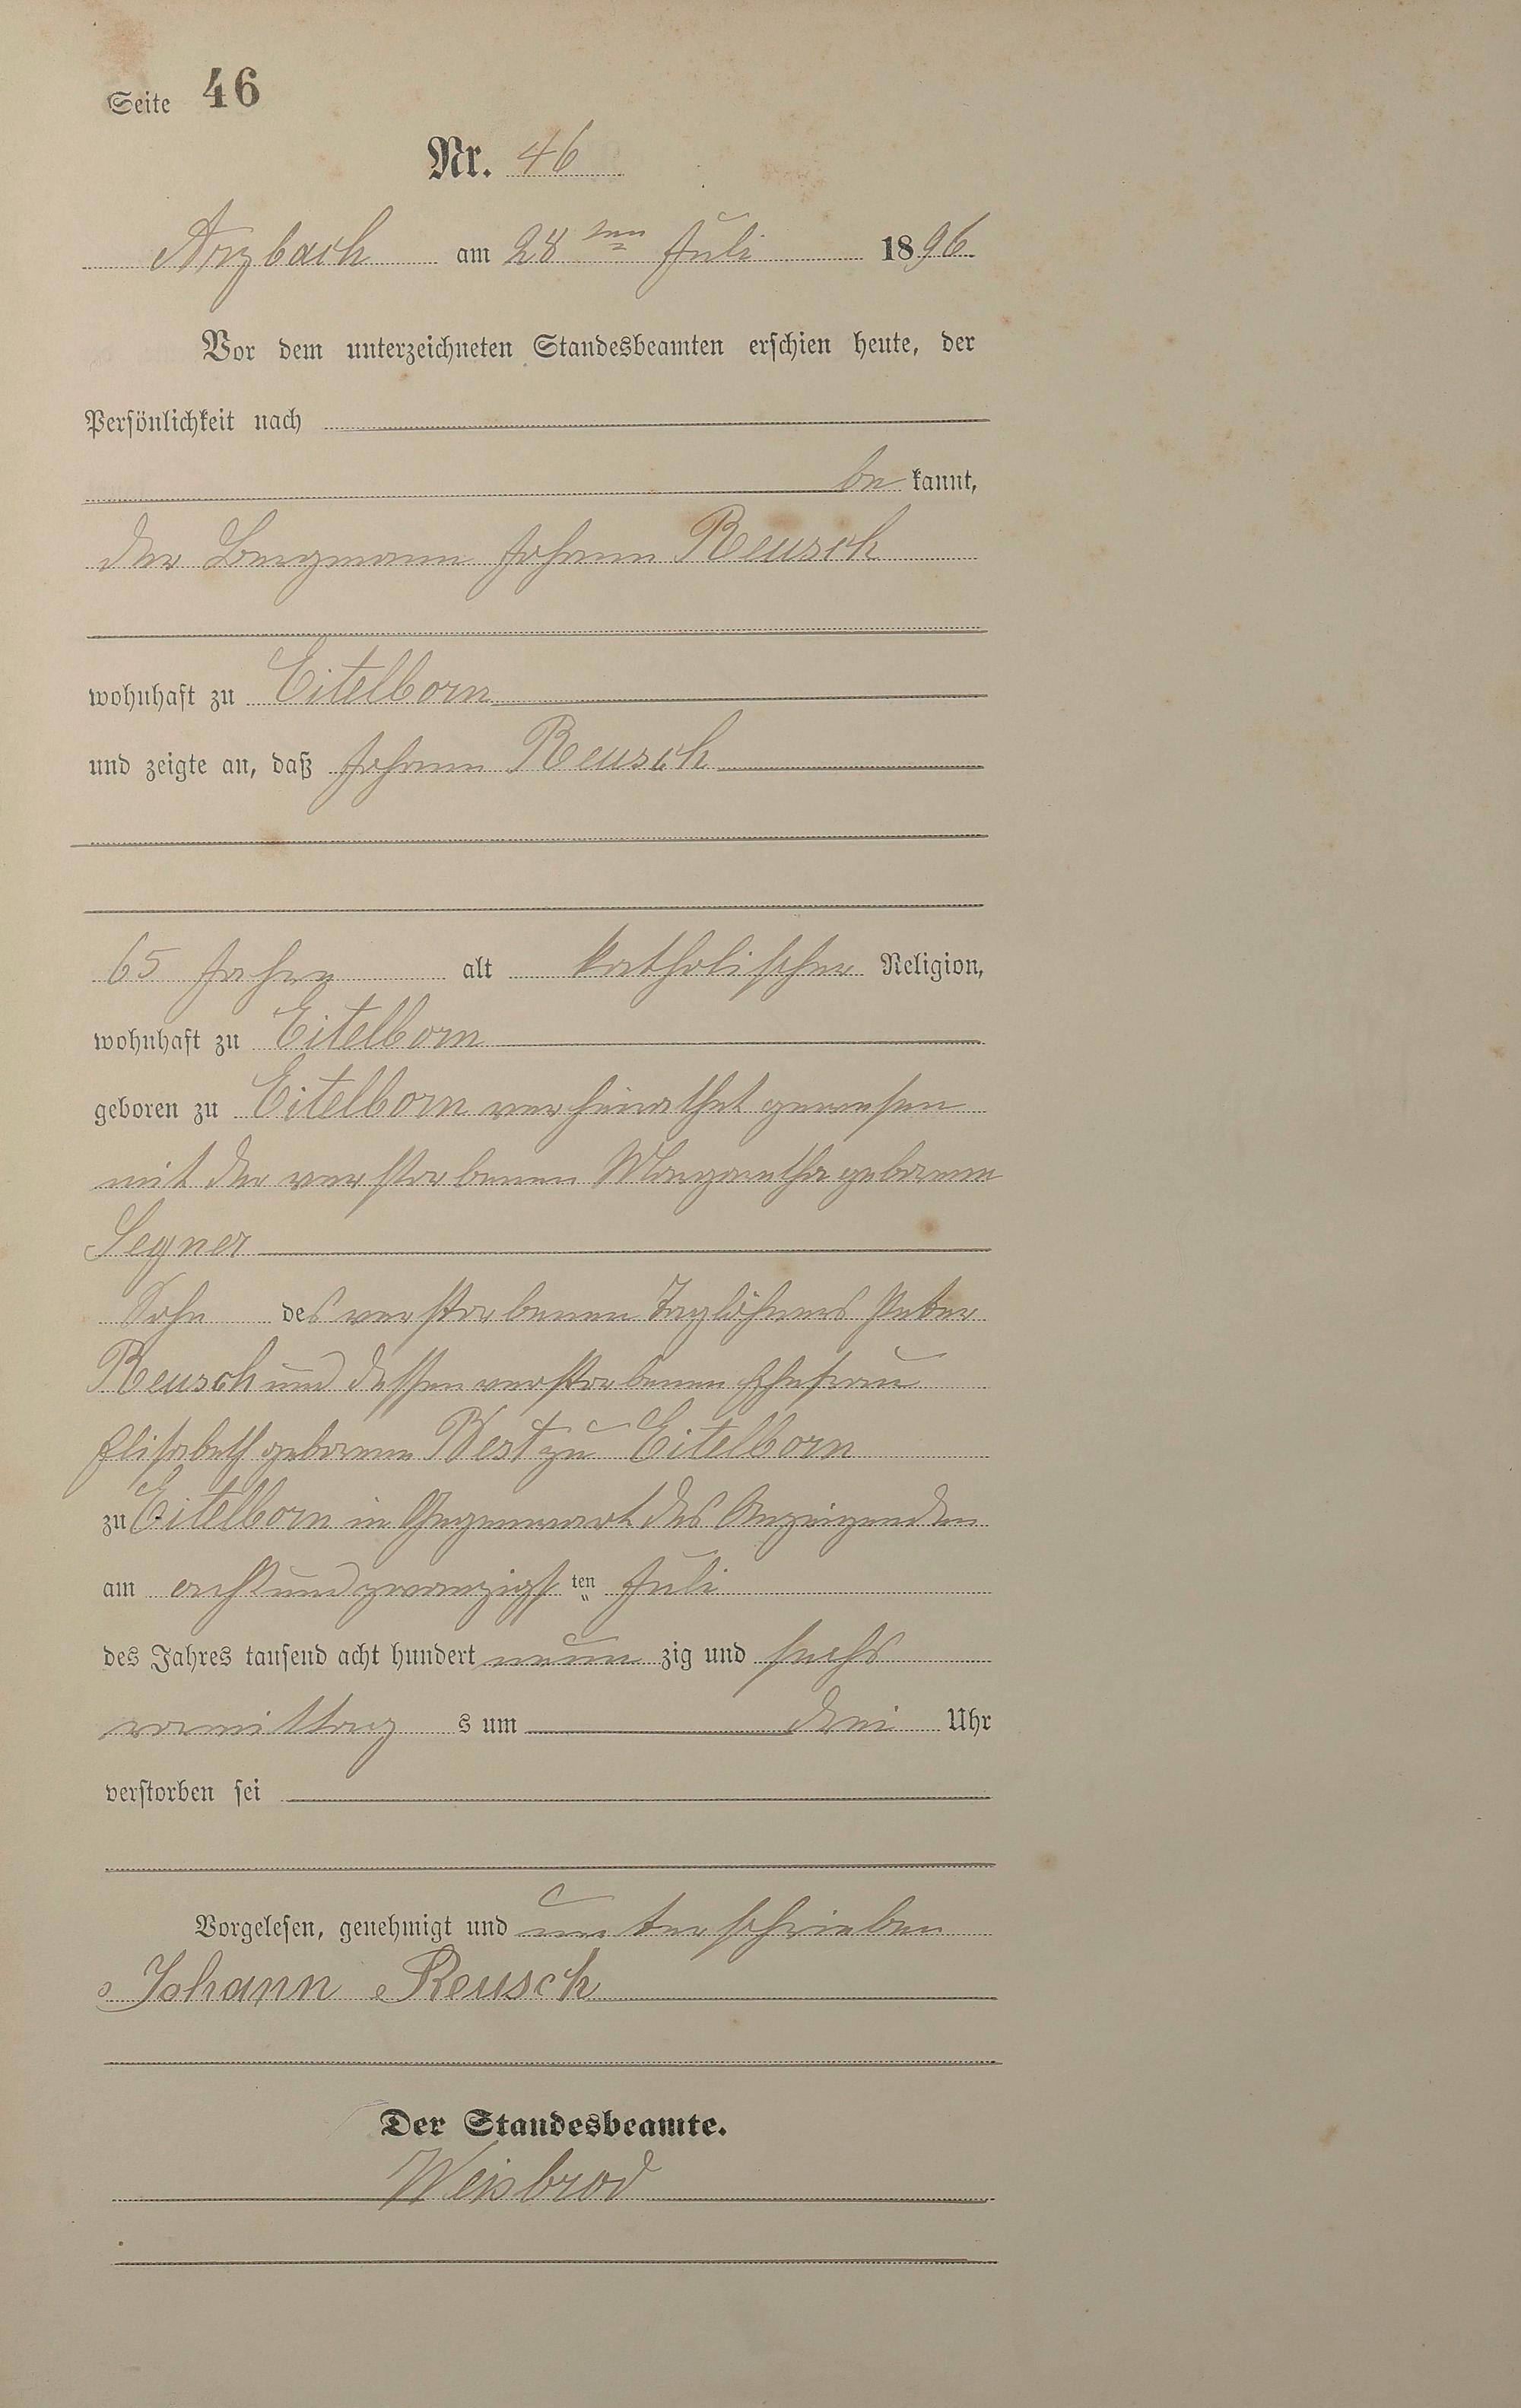 Seite 46
Nr. 46
Arzbach am 28ten Juli 1896
Vor dem unterzeichneten Standesbeamten erschien heute, der
Persönlichkeit nach
be kannt,
der Bergmann Johann Reusch
wohnhaft zu Eitelborn
und zeigte an, daß Johann Reusch
65 Jahre alt katholischer Religion,
wohnhaft zu Eitelborn
geboren zu Eitelborn verheirathet gewesen
mit der verstorbenen Margaretha geborene
Legner
Sohn des verstorbenen Taglöhners Peter
Reusch und dessen verstorbenen Ehefrau
Elisabeth geborene Best zu Eitelborn
zu Eitelborn in Gegenwart des Anzeigenden
am achtundzwanzigsten Juli
des Jahres tausend acht hundert neun zig und sechs
vormittag s um drei Uhr
verstorben sei
Vorgelesen, genehmigt und unterschrieben
Johann Reusch
Der Standesbeamte.
Weisbrod